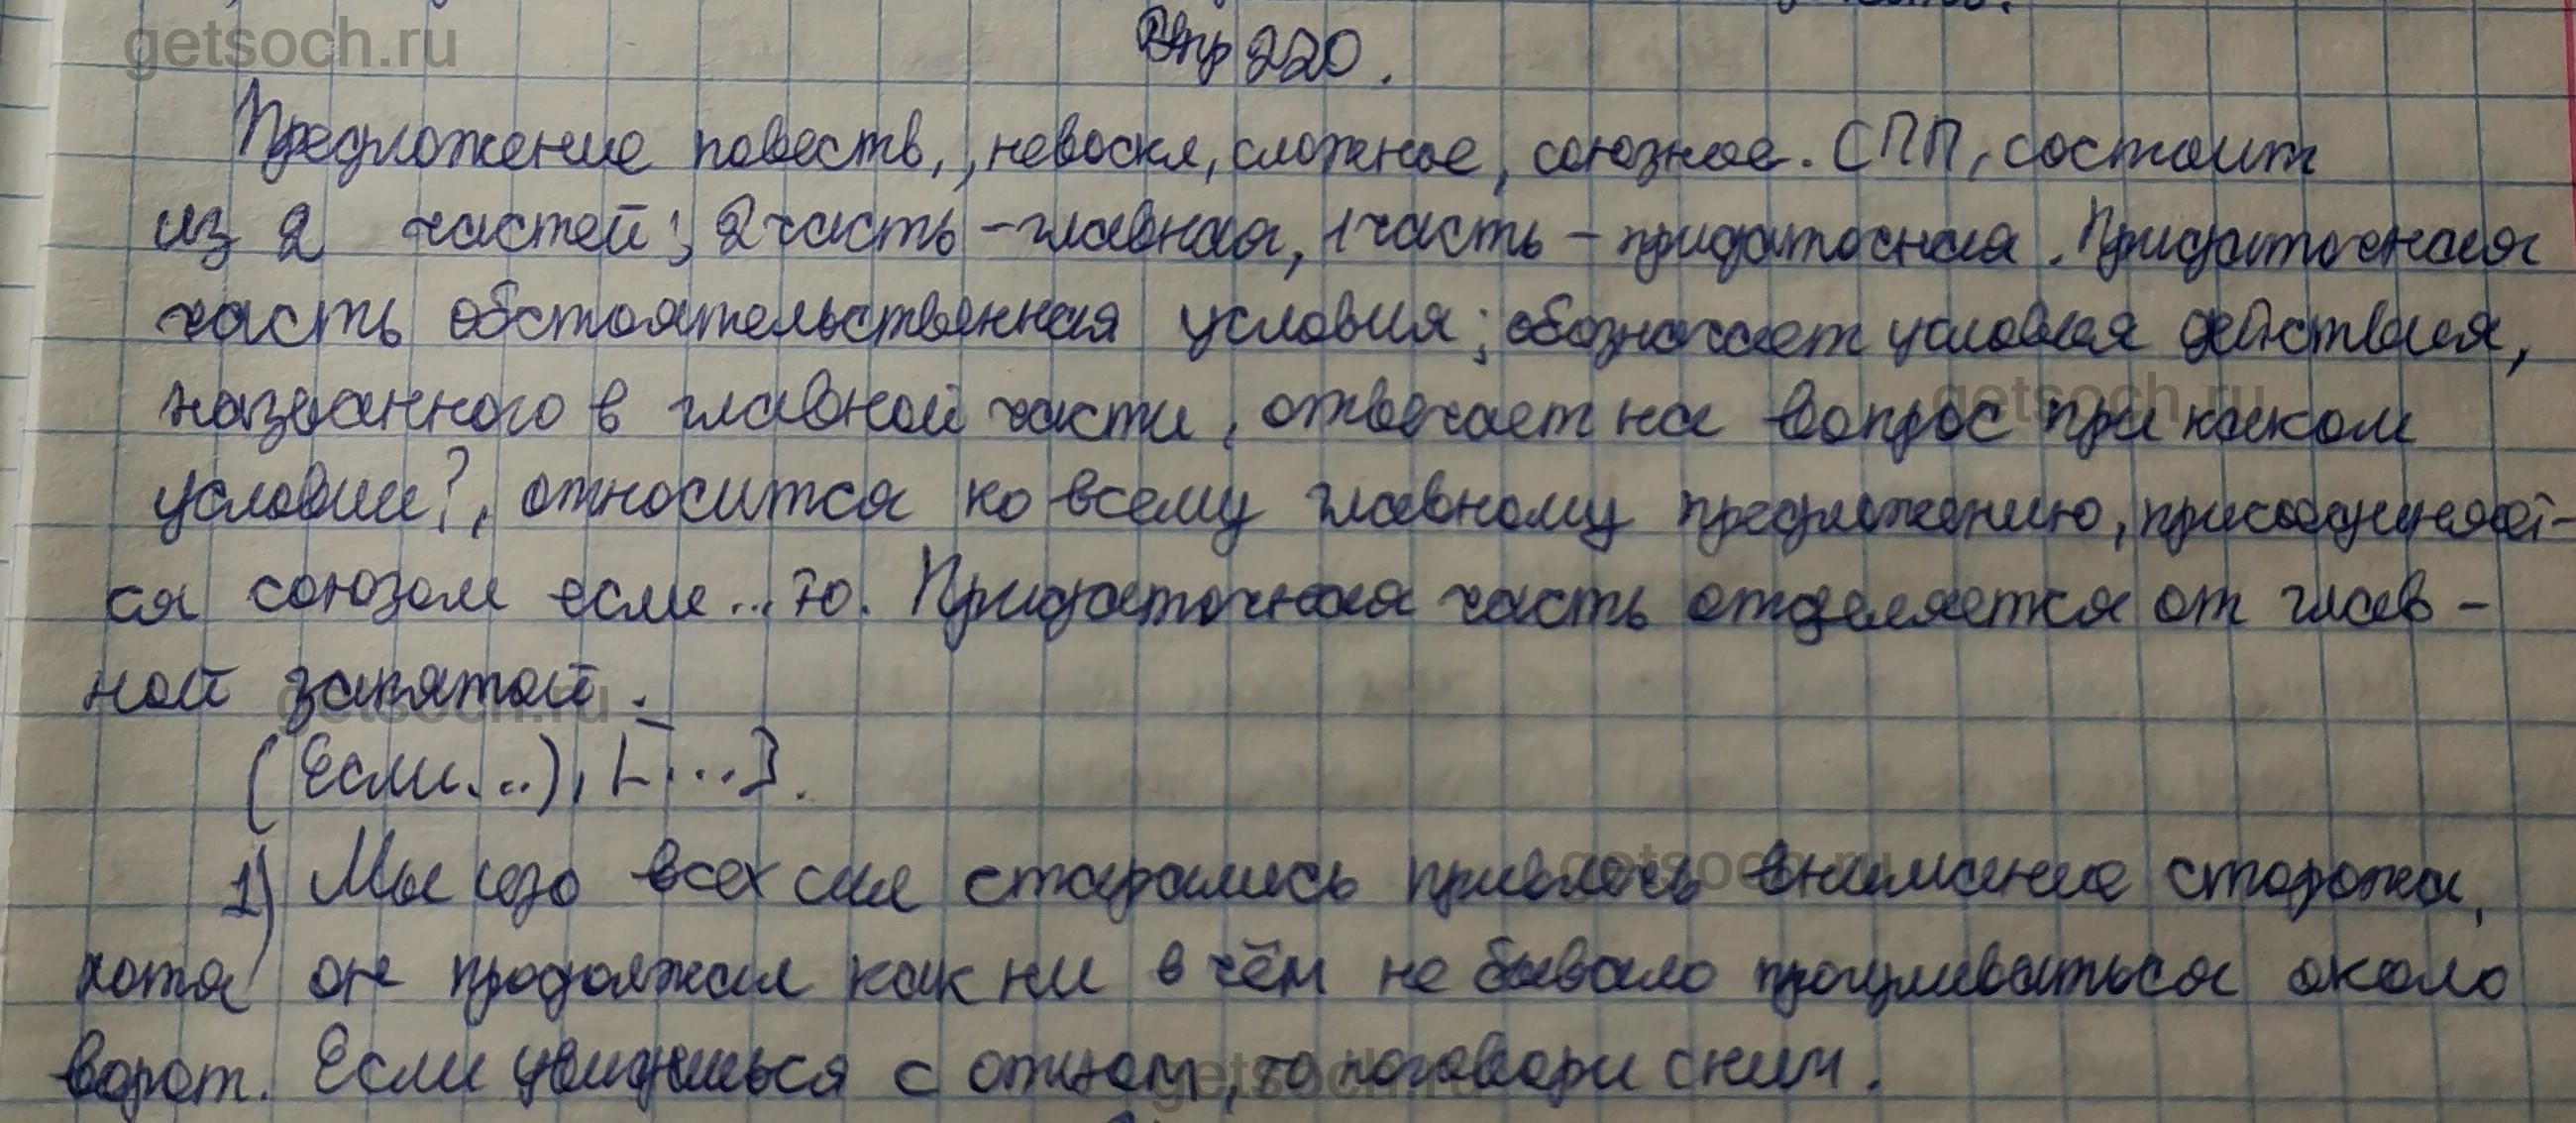 getsoch.ru
Впр 220.
Предложение повеств., невоскл, сложное, союзное. СПП, состоит
из 2 частей; 2 часть - главная, 1 часть - придаточная. Придаточная
часть обстоятельственная условия; обозначает условия действия,
названного в главной части, отвечает на вопрос при каком
getsoch.ru
условии?, относится ко всему главному предложению, присоединяет-
ся союзом если...то. Придаточная часть отделяется от глав-
ной запятой.
getsoch.ru
(Если...), [...].
1) Мы изо всех сил старались привлечь внимание сторожа,
getsoch.ru
хотя он продолжал как ни в чём не бывало прогуливаться около
ворот. Если увидишься с отцом, то поговори с ним.
getsoch.ru